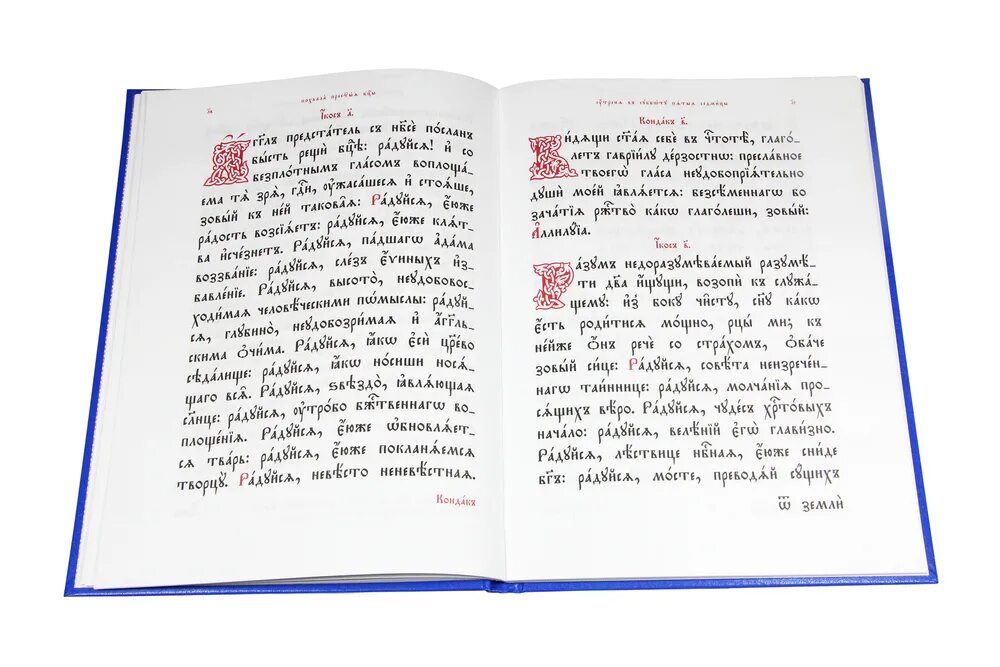 похвала прест҃ы́ѧ бц҃ы
І҆́косъ а҃.
А҆́гг҃лъ предста́тель съ нб҃сѐ по́сланъ
бы́сть рещѝ бц҃ѣ: ра́дꙋйсѧ! и҆ со
безпло́тнымъ гла́сомъ воплоща́_
ема тѧ̀ зрѧ̀, гдⷭ҇и, ᲂу҆жаса́шесѧ и҆ стоѧ́ше,
зовы́й къ не́й такова̑ѧ: Ра́дꙋйсѧ, є҆́юже
ра́дость возсїѧ́етъ: ра́дꙋйсѧ, є҆́юже клѧ́т_
ва и҆зче́знетъ. Ра́дꙋйсѧ, па́дшагѡ а҆да́ма
воззва́нїе: ра́дꙋйсѧ, сле́зъ є҆́ѵиныхъ и҆з_
бавле́нїе. Ра́дꙋйсѧ, высото̀, неꙋдобовос_
ходи́маѧ человѣ́ческими по́мыслы: ра́дꙋй_
сѧ, глꙋбино̀, неꙋдобозри́маѧ и҆ а҆́гг҃ль_
скима ѻ҆чи́ма. Ра́дꙋйсѧ, ꙗ҆́кѡ є҆сѝ цр҃е́во
сѣда́лище: ра́дꙋйсѧ, ꙗ҆́кѡ но́сиши носѧ́_
щаго всѧ̑. Ра́дꙋйсѧ, ѕвѣздо̀, ꙗ҆влѧ́ющаѧ
сл҃нце: ра́дꙋйсѧ, ᲂу҆тро́бо бжⷭ҇твеннагѡ во_
площе́нїѧ. Ра́дꙋйсѧ, є҆́юже ѡ҆бновлѧ́ет_
сѧ тва́рь: ра́дꙋйсѧ, є҆́юже покланѧ́емсѧ
творцꙋ̀. Ра́дꙋйсѧ, невѣ́сто неневѣ́стнаѧ.
Конда́къ
ᲂу҆́тренѧ въ сꙋббѡ́тꙋ пѧ́тыѧ седми́цы
Конда́къ в҃.
Ви́дѧщи ст҃а́ѧ себѐ въ чⷭ҇тотѣ̀, глаго́_
летъ гаврїи́лꙋ де́рзостнѡ: пресла́вное
твоегѡ̀ гла́са неꙋдобопрїѧ́тельно
дꙋшѝ мое́й ꙗ҆влѧ́етсѧ: безсѣ́меннагѡ бо
зача́тїѧ ржⷭ҇тво̀ ка́кѡ глаго́леши, зовы́й:
А҆ллилꙋ́їа.
І҆́косъ в҃.
Ра́зꙋмъ недоразꙋмѣва́емый разꙋмѣ́_
ти дв҃а и҆́щꙋщи, возопѝ къ слꙋжа́_
щемꙋ: и҆з̾ бокꙋ̀ чи́стꙋ, сн҃ꙋ ка́кѡ
є҆́сть роди́тисѧ мо́щно, рцы́ ми; къ
не́йже ѻ҆́нъ речѐ со стра́хомъ, ѻ҆ба́че
зовы́й си́це: Ра́дꙋйсѧ, совѣ́та неизрече́н_
нагѡ таи́ннице: ра́дꙋйсѧ, молча́нїѧ про_
сѧ́щихъ вѣ́ро. Ра́дꙋйсѧ, чꙋде́съ хрⷭ҇то́выхъ
нача́ло: ра́дꙋйсѧ, велѣ́нїй є҆гѡ̀ глави́зно.
Ра́дꙋйсѧ, лѣ́ствице нбⷭ҇наѧ, є҆́юже сни́де
бг҃ъ: ра́дꙋйсѧ, мо́сте, преводѧ́й сꙋ́щихъ
ѿ землѝ